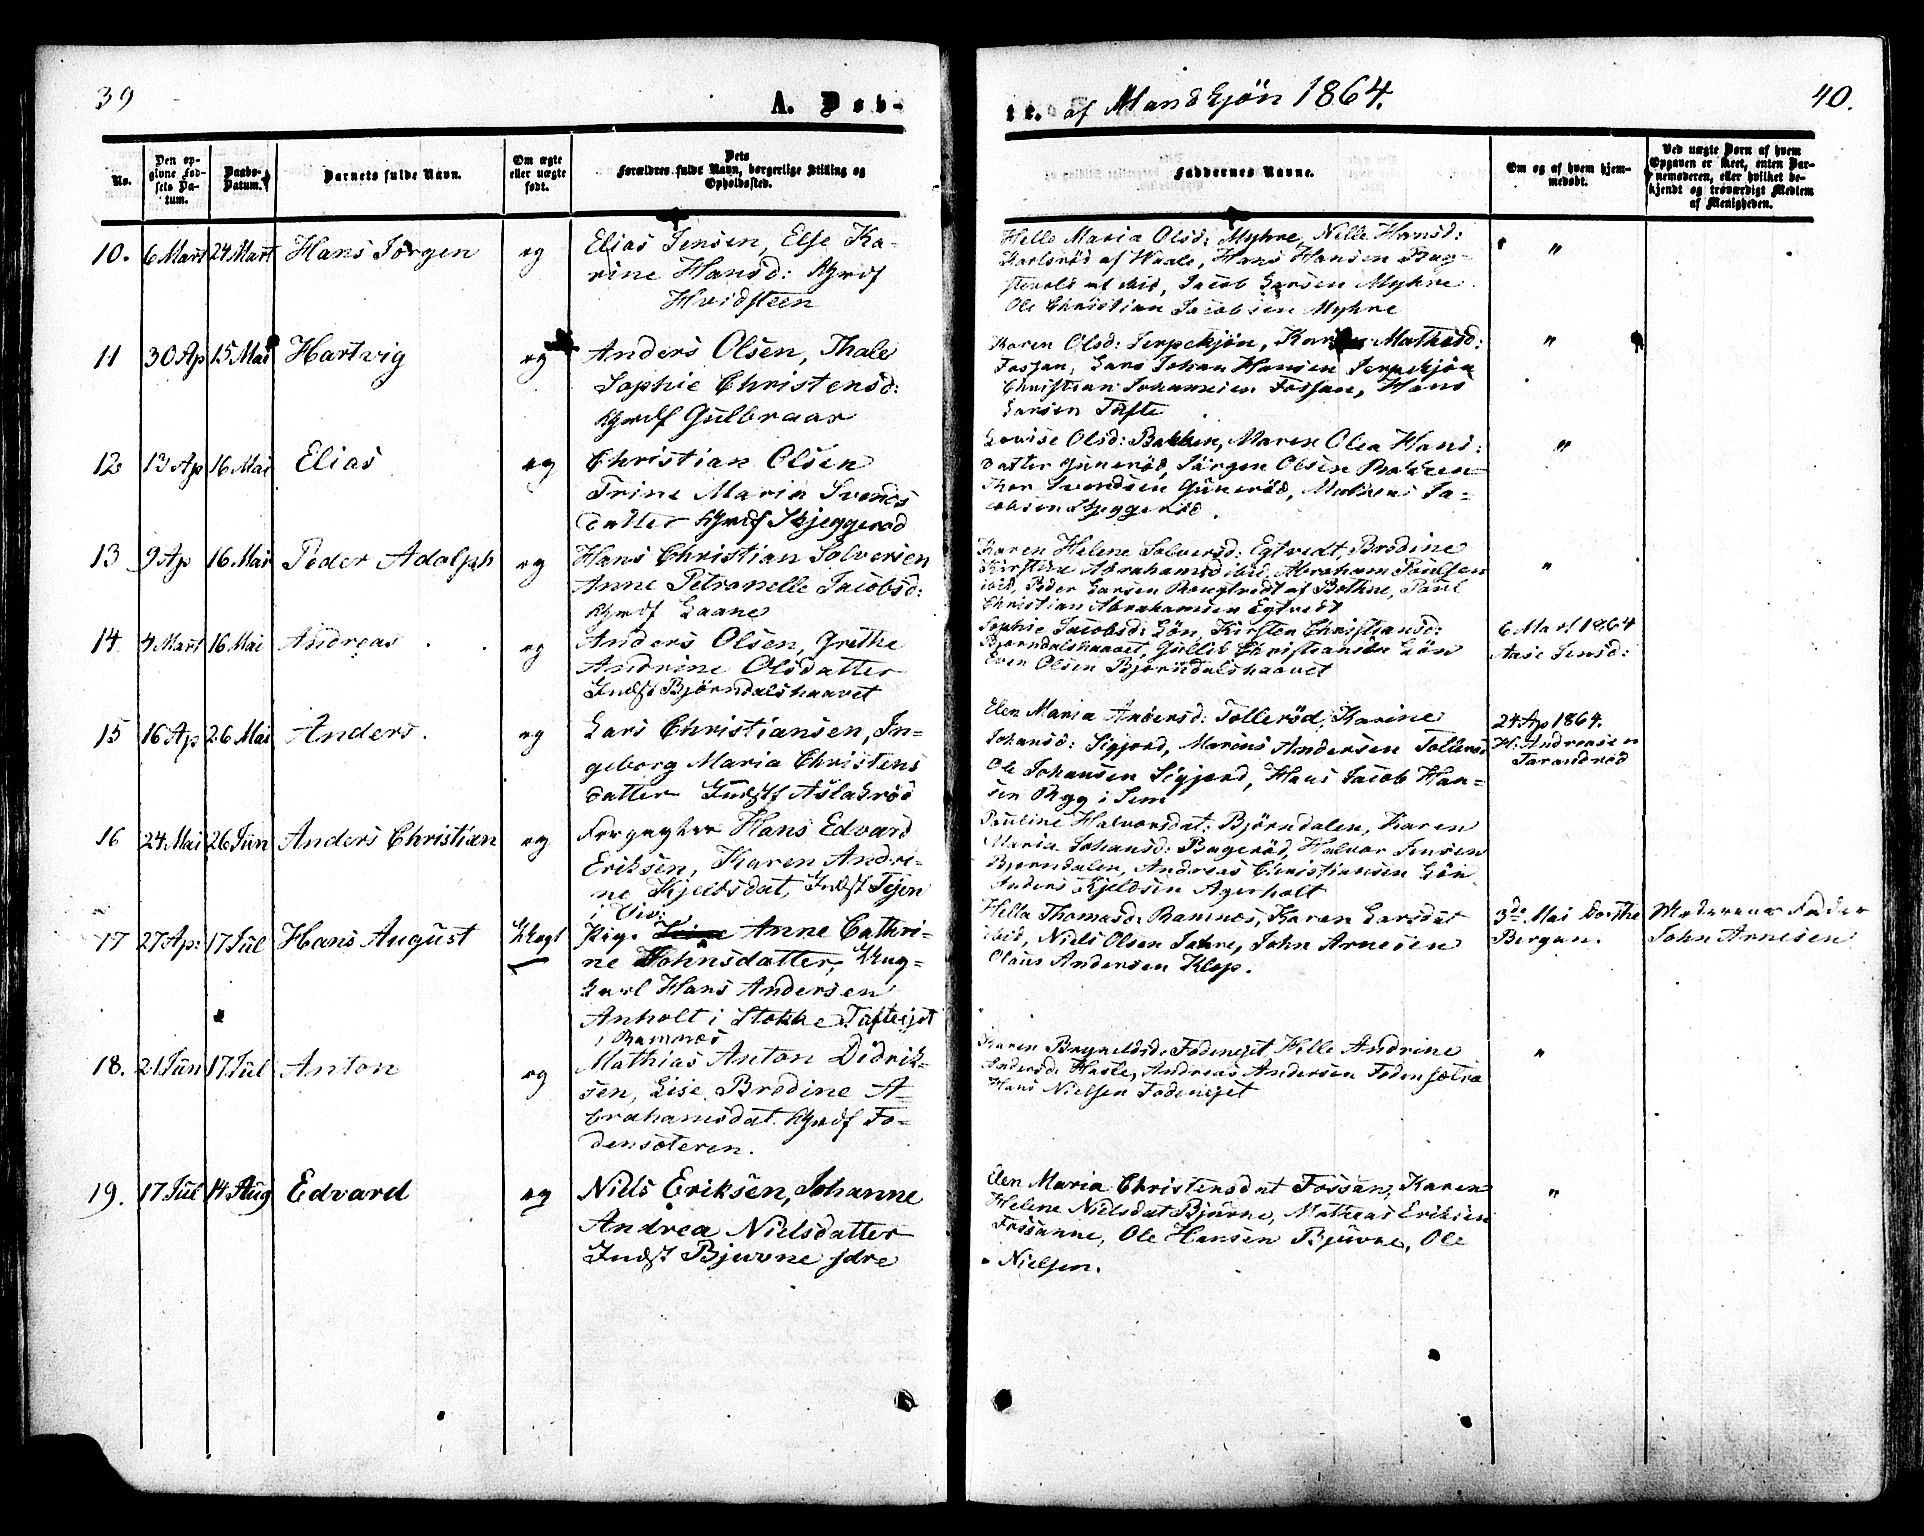 39
A. Døb-
te. af Mandkjøn 1864.
40.
No.
Den op-
givne Fød-
sels Da-
tum.
Daabs-
Datum.
Barnets fulde Navn.
Om ægte
eller uægte
født.
Dets
Forældres fulde Navn, borgerlige Stilling og
Opholdssted.
Faddernes Navne.
Om og af hvem hjem-
medøbt.
Ved uægte Børn af hvem
Opgaven er skeet, enten Bar-
nemoderen, eller hvilket be-
kjendt og troværdigt Medlem
af Menigheden.
10. 6 Mart 24 Mart Hans Jørgen
eg
Elias Jensen, Else Ka-
rine Hansd: Grdf
Hvidsteen
Helle Maria Olsd: Myhre, Nille Hansd:
af Waale, Hans Hansen
ibid, Jacob Larsen Myhre
Ole Christian Jacobsen Myhre
"
11 30 Ap 15 Mai Hartvig
eg
Anders Olsen, Thale
Sophie Christensd:
Grdf Gulbraar
Karen Olsd: Serpekjøn, Mathisd:
Fossan, Lars Johan Hansen Serpekjøn
Christian Johannesen Fossan, Hans
Larsen Tufte
"
12 13 Ap 16 Mai Elias
eg
Christian Olsen
Trine Maria Svends
datter Grdf Skjeggerød
Lovise Olsd: Bakken, Maren Olea Hans
datter Gunerød, Jørgen Olsen Bakken
Thor Svendsen Gunerød, Mathias Ja-
cobsen Skjeggerød.
"
13 9 Ap 16 Mai Peder Adolph
eg
Hans Christian Solversen
Anne Petronelle Jacobsd:
Grdf Haane
Karen Helene Solversd: Egtvedt, Bredine
Kirstine Abrahamsd ibid, Abraham Paulsen
ibid, Peder Larsen af Bothne, Paul
Christian Abrahamsen Egtvedt
"
14 4 Mart 16 Mai Andreas
eg
Anders Olsen, Grethe
Andrine Olsdatter
Indst Bjørndalshaavet
Sophie Jacobsd: Løn, Kirsten Christiansd:
Bjørndalshaavet, Gullik Christiansen Løn
Even Olsen Bjørndalshaavet
6 Mart 1864
Aase Jensd:
15 16 Ap 26 Mai Anders.
eg
Lars Christiansen, In-
geborg Maria Christens
datter Indst Aslakrød
Elen Maria Andersd: Tollerød, Karine
Johansd: Sigjord, Marens Andersen Tollerød
Ole Johansen Sigjord, Hans Jacob Han-
sen Ryg i Sem
24 Ap 1864.
H. Andreasen
Tarandrød
16 24 Mai 26 Jun Anders Christian
eg
Forpagter Hans Edvard
Eriksen, Karen Andri-
ne Kjeldsdat, Indst Tejen
i Viv:
Pauline Halvorsdat: Bjørndalen, Karen
Maria Johansd: Bagerød, Halvor Jensen
Bjørndalen, Andreas Christiansen Løn
Anders Kjeldsen Agerholt
17 27 Ap: 17 Jul Hans August
Uægt
Pige Anne Cathri-
ne Johnsdatter, Ung-
karl Hans Andersen
Anholt i Stokke, Tufteejet
i Ramnæs
Hella Thomasd: Ramnæs, Karen Larsdat
ibid, Niels Olsen Jahre, John Arnesen
Olaus Andersen Klop.
3die Mai Dorthe
Bergan.
Moderens Fader
John Arnesen
18. 21 Jun 17 Jul Anton
eg
Mathias Anton Didrik-
sen, Lise Bredine A-
brahamsdat. Grdf Fo-
densæteren.
Karen Brynildsd: Fodenejet Helle Andrine
Andersd: Hasle, Andreas Andersen Fodensætra
Hans Nielsen Fodenejet
"
19. 17 Jul 14 Aug Edvard
eg
Niels Eriksen, Johanne
Andrea Nielsdatter
Indst Bjuvne sdre
Elen Maria Christensdat Fossan, Karen
Helene Nielsdat Bjuvne, Mathias Eriksen
Fossanne, Ole Hansen Bjuvne, Ole
Nielsen.
"